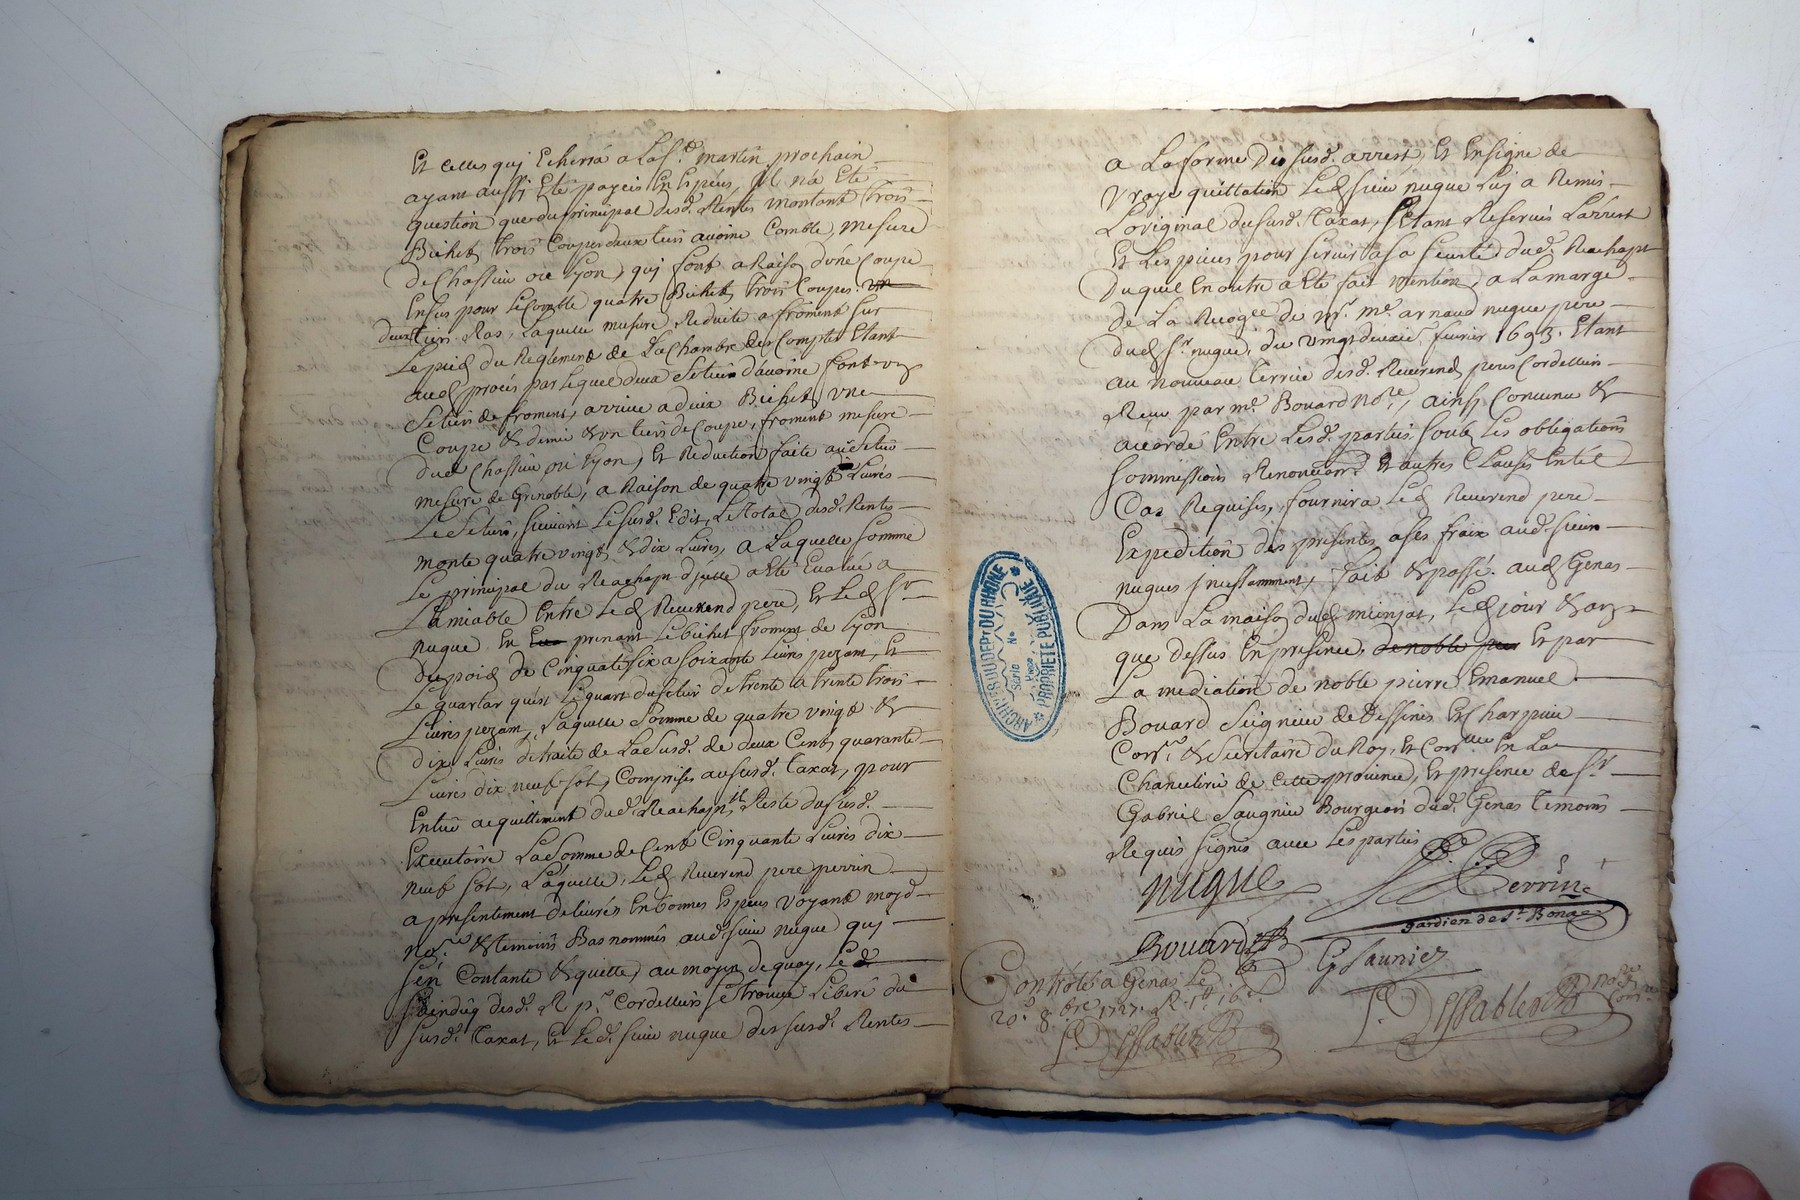 Et celles quj Echerra a La St. martin prochain
ayant aussj Eté payeis En Espéces, Jl n'a Eté
question que du principal desd. Rentes montant trois
Bichets trois Coupes deux tiers avoine Comble, mesure
de Chassieu ou Lyon, quj font a Raison d'une Coupe
En sus pour le Comble quatre Bichets trois Coupes
deux tiers Ras, Laquelle mesure Reduite a froment sur
Le pied du Reglement de La Chambre des Comptes Etant
aud procés par Lequel deux Setiers d'avoine font un
Setier de froment, arrive a deux Bichets une
Coupe & demie & un tiers de Coupe, froment mesure
dud Chassieu ou Lyon, Et Reduction faite au Setier
mesure de Grenoble, a Raison de quatre vingt Livres
Le Setier, suivant Le susd. Edit, Le total desd. Rentes
monte quatre vingt & dix Livres, a Laquelle somme
Le principal du Reachapt d'jcelle a Eté Evalué a
L'amiable Entre Led Reverend pere, Et Led Sr
nugue En prenant Le bichet froment de Lyon
du poid de Cinquante six a soixante Livres pezant, Et
Le quartar qu'est Le quart du setier de trente a trente trois
Livres pezant, Laquelle Somme de quatre vingt &
dix Livres detraite de La susd. de deux Cents quarante
Livres dix neuf sols, Comprises au susd. taxat, pour
Entier acquittement dud. Reachapt, il Reste du susd.
Executoire La Somme de Cent Cinquante Livres dix
neuf sols, Laquelle, Led Reverend pere perrin
a presentement delivrés En bonnes Espéces Voyant moyd
nore & temoins Bas nommés aud. sieur nugue quj
s'en Contante & quitte, au moyen de quoy, Le
sindiq desd. R. p. Cordelliers se trouve Liberé du
susd. taxat, Et Led. sieur nugue des susd. Rentes
a La forme du susd. arrest, Et En signe de
Vraye quittation Led sieur nugue Luj a Remis
L'original du susd. taxat, s'Etant Reservés L'arrest
Et Les pieces pour servir a sa seureté dud. Reachapt
Duquel En outre a Eté fait mention, a La marge
de La Recogce de mr. me arnaud nugue pere
dud Sr nugue, du vingt deuxie. fevrier 1693. Etant
au nouveau terrier desd. Reverends peres Cordelliers
Receu par me. Bouard nore, ainsj Convenu &
accordé Entre Lesd. parties, soub Les obligations
sommissions Renonciaons Et autres Clauses En tel
Cas Requises, fournira Led Reverend pere
Expedition des presentes a ses fraix aud. sieur
nugues jncessamment, fait & passé aud Genas
Dans La maison dud minjat, Led jour & an
que dessus En presence, Et par
La mediation de noble pierre Emanuel
Bouard Seigneur de Dessines Et Charpieu
Conr. & Secretaire du Roy, Et Con En La
Chancelerie de cette province, Et presence de Sr
Gabriel Saugnier Bourgeois dud. Genas temoins
Requis signés avec Les parties
nugue
Perrin
gardien de St. Bonave
Bouard
G Saunier
Controlé a Genas Le
20e. 8bre 1727. R. 1tt 16s.